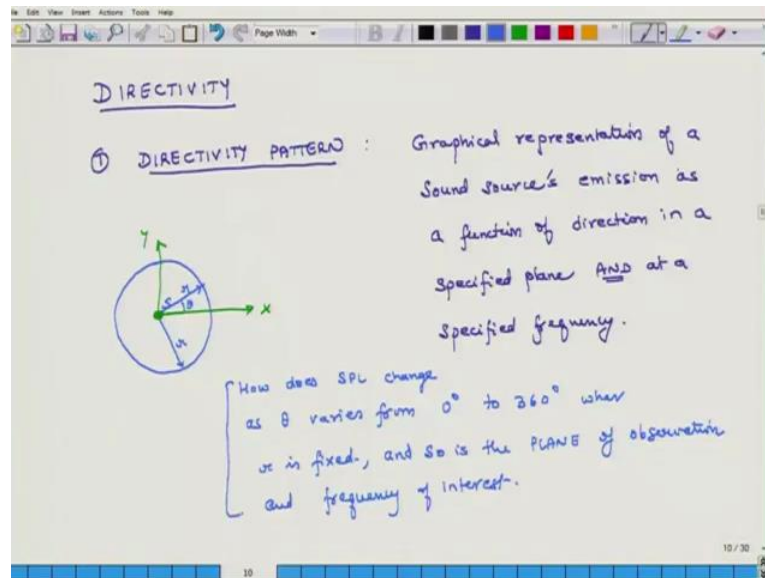 File Edit View Insert Actions Tools Help
Page Width
B I
DIRECTIVITY
① DIRECTIVITY PATTERN : Graphical representation of a
Sound source's emission as
a function of direction in a
specified plane AND at a
specified frequency.
Y
S
r
θ
X
r
How does SPL change
as θ varies from 0° to 360° when
r is fixed, and so is the PLANE of observation
and frequency of interest.
10 / 30
10